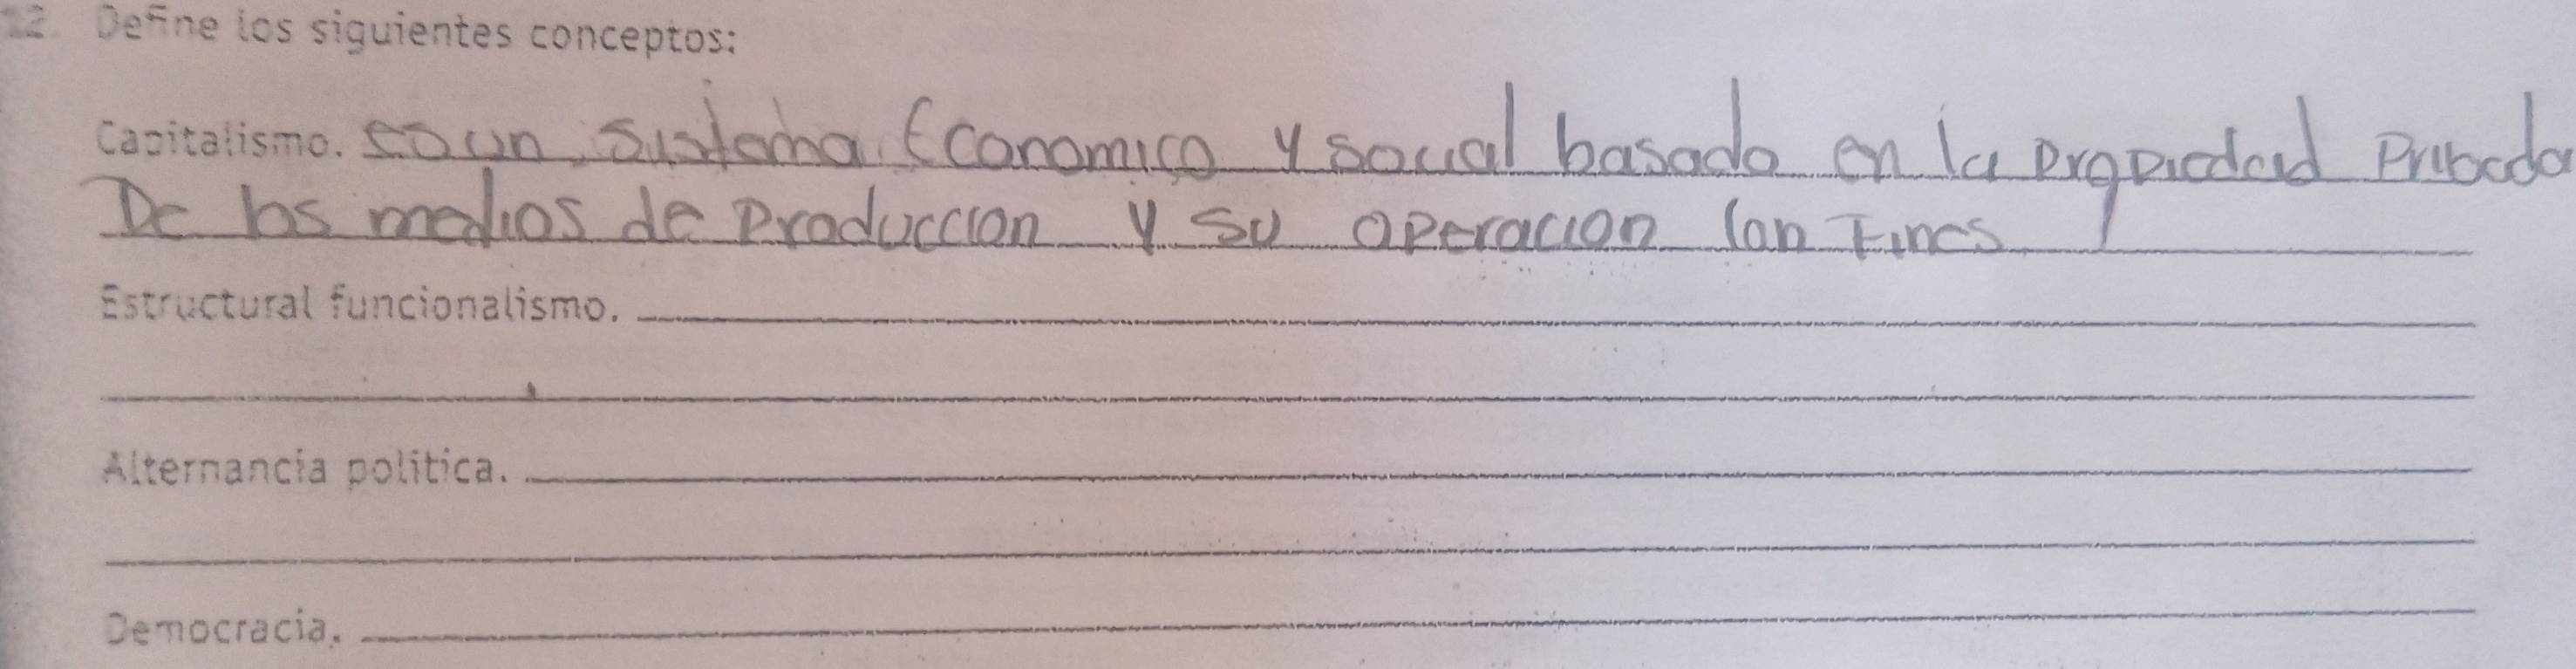 12. Define los siguientes conceptos:
Capitalismo. es un sistema Economico y social basado en la propiedad Pribada
De los medios de Produccion y su operacion con Fines
Estructural funcionalismo.
Alternancia politica.
Democracia.